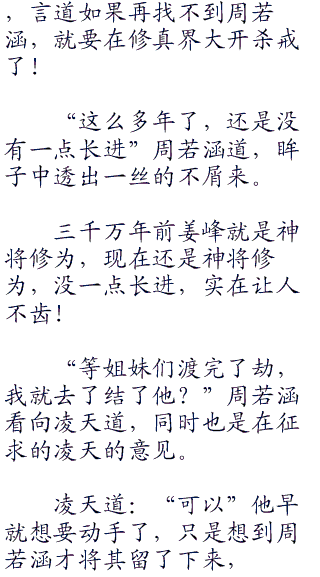 ，言道如果再找不到周若
涵，就要在修真界大开杀戒
了！
“这么多年了，还是没
有一点长进”周若涵道，眸
子中透出一丝的不屑来。
三千万年前姜峰就是神
将修为，现在还是神将修
为，没一点长进，实在让人
不齿！
“等姐妹们渡完了劫，
我就去了结了他？”周若涵
看向凌天道，同时也是在征
求的凌天的意见。
凌天道：“可以”他早
就想要动手了，只是想到周
若涵才将其留了下来，